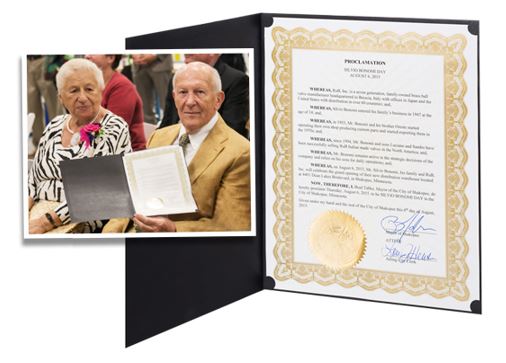 PROCLAMATION
SILVIO BONOMI DAY
AUGUST 6, 2015
WHEREAS, RuB, Inc. is a seven generation, family-owned brass ball
valve manufacturer headquartered in Brescia, Italy with offices in Japan and the
United States with distribution in over 60 countries; and,
WHEREAS, Silvio Bonomi entered his family's business in 1947 at the
age of 14; and,
WHEREAS, in 1953, Mr. Bonomi and his brother started
operating their own shop producing custom parts and started exporting them in
the 1970s; and,
WHEREAS, since 1994, Mr. Bonomi and sons Luciano and Sandro have
been successfully selling RuB Italian made valves in North America; and,
WHEREAS, Mr. Bonomi remains active in the strategic decisions of the
company and relies on his sons for daily operations; and,
WHEREAS, on August 6, 2015, Mr. Silvio Bonomi, his family and RuB,
Inc. will celebrate the grand opening of their new distribution warehouse located
at Dean Lakes Boulevard, in Shakopee, Minnesota.
NOW, THEREFORE, I, Brad Tabke, Mayor of the City of Shakopee, do
hereby proclaim Thursday, August 6, 2015 to be SILVIO BONOMI DAY in the
City of Shakopee, Minnesota.
Given under my hand and the seal of the City of Shakopee this 6th day of August,
2015.
Mayor of Shakopee
ATTEST:
Acting City Clerk